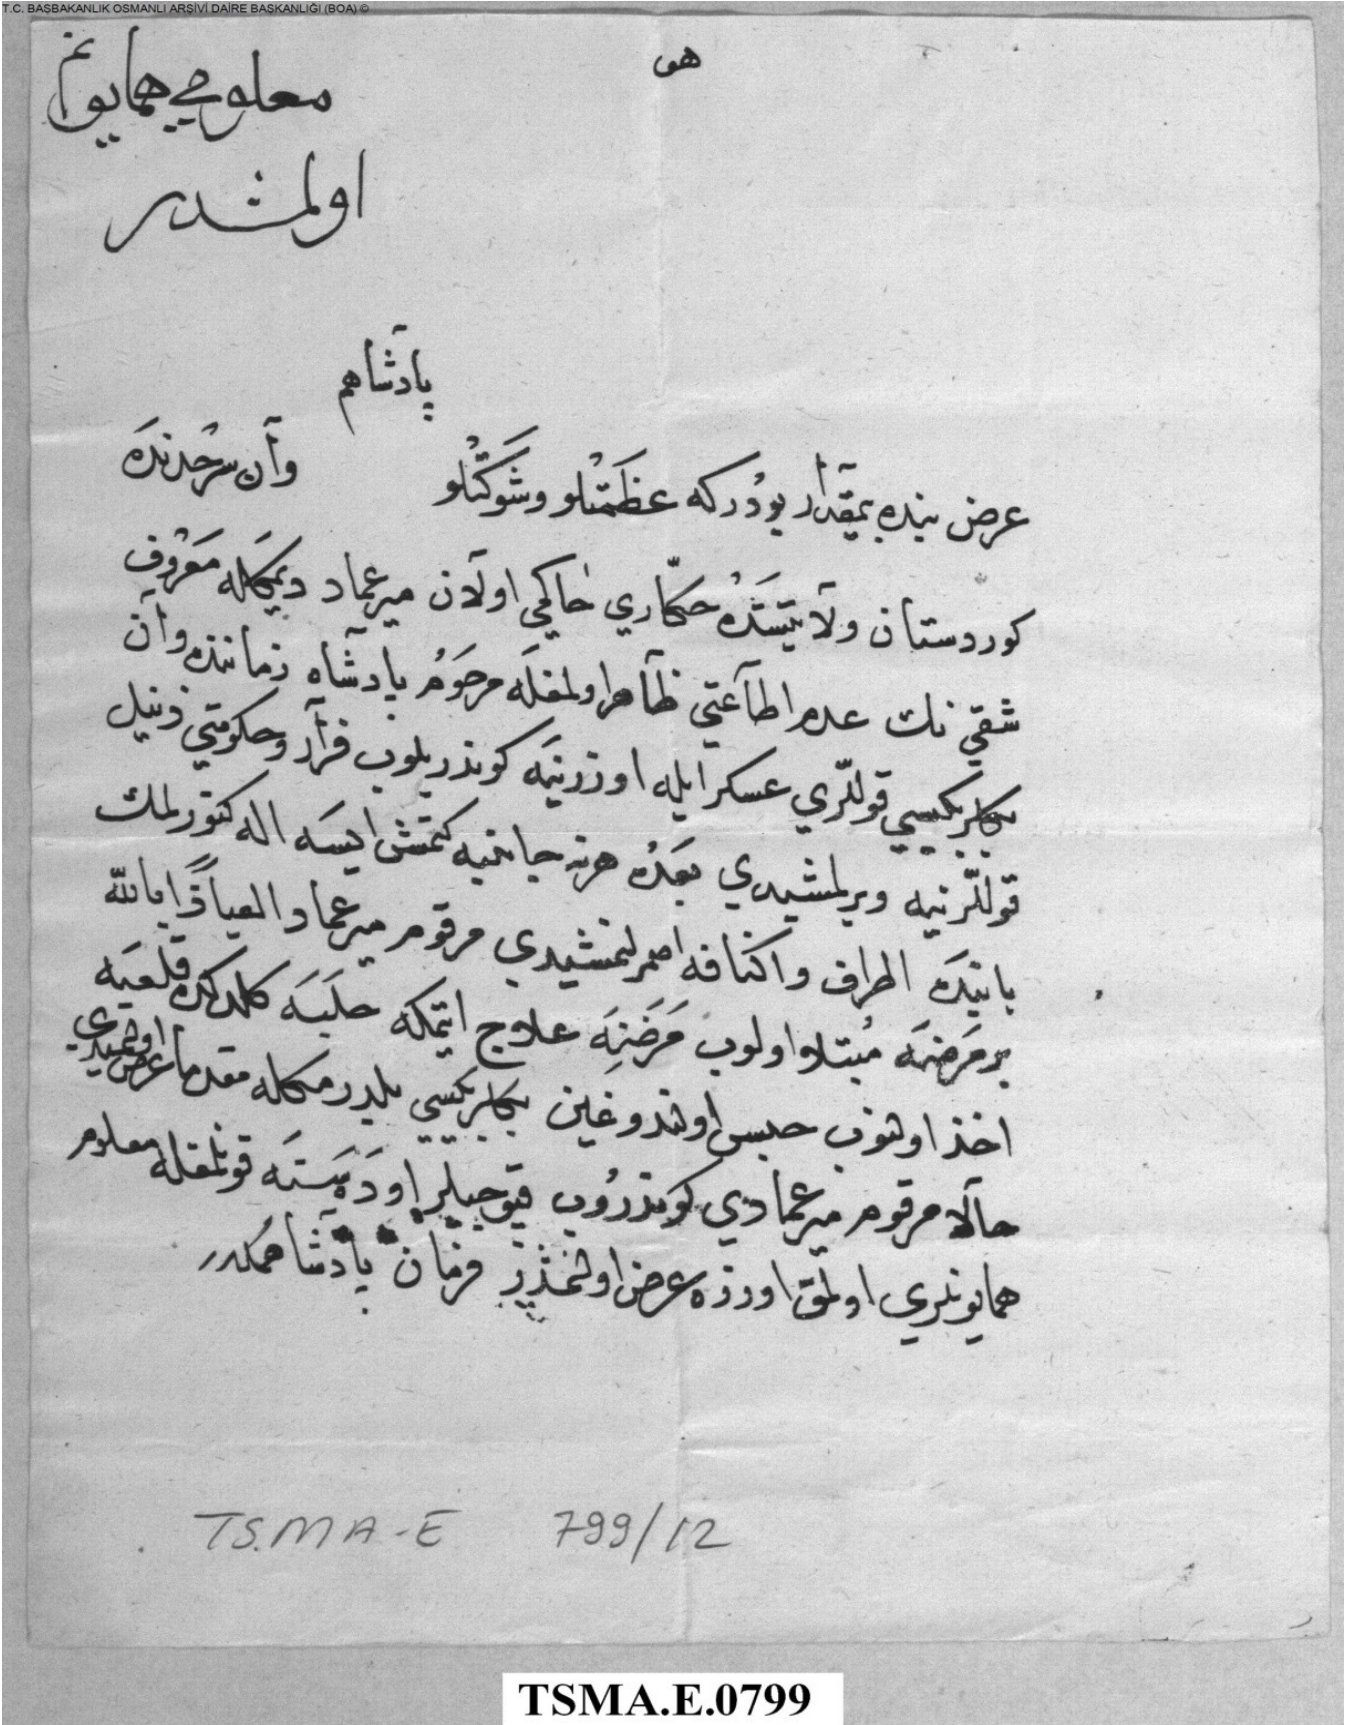 T.C. BAŞBAKANLIK OSMANLI ARŞİVİ DAİRE BAŞKANLIĞI (BOA) ©
هو
معلوم همايونم
اولمشدر
پادشاهم
عرض بنده بيمقدار بودركه عظمتلو وشوكتلو وان سرحدنده
كوردستان ولايتنده حكّاري حاكمي اولان مير عماد ديمكله معروف
شقي نك عدم اطاعتي ظاهر اولمغله مرحوم پادشاه زماننده وان
بكلربكيسي قوللري عسكر ايله اوزرينه كوندريلوب فرار وحكومتي زينل
قوللرينه ويرلمشيدي بعده هرنه جانبه كتمش ايسه اله كتورلمك
بابنده اطراف واكنافه امر لنمشيدي مرقوم مير عماد العياذا بالله
بر مرضه مبتلا اولوب مرضنه علاج ايتمكه حلبه كلدكده قلعيه
اخذ اولنوب حبس اولندوغين بكلربكيسي بلدرمكله مقدما عرض اولنميدي
حالا مرقوم مير عمادي كوندروب قپوجيلر اوده سنه قونلمغله معلوم
همايونلري اولمق اوزره عرض اولنمشدر فرمان پادشاهمكدر
TS.MA-E 799/12
TSMA.E.0799